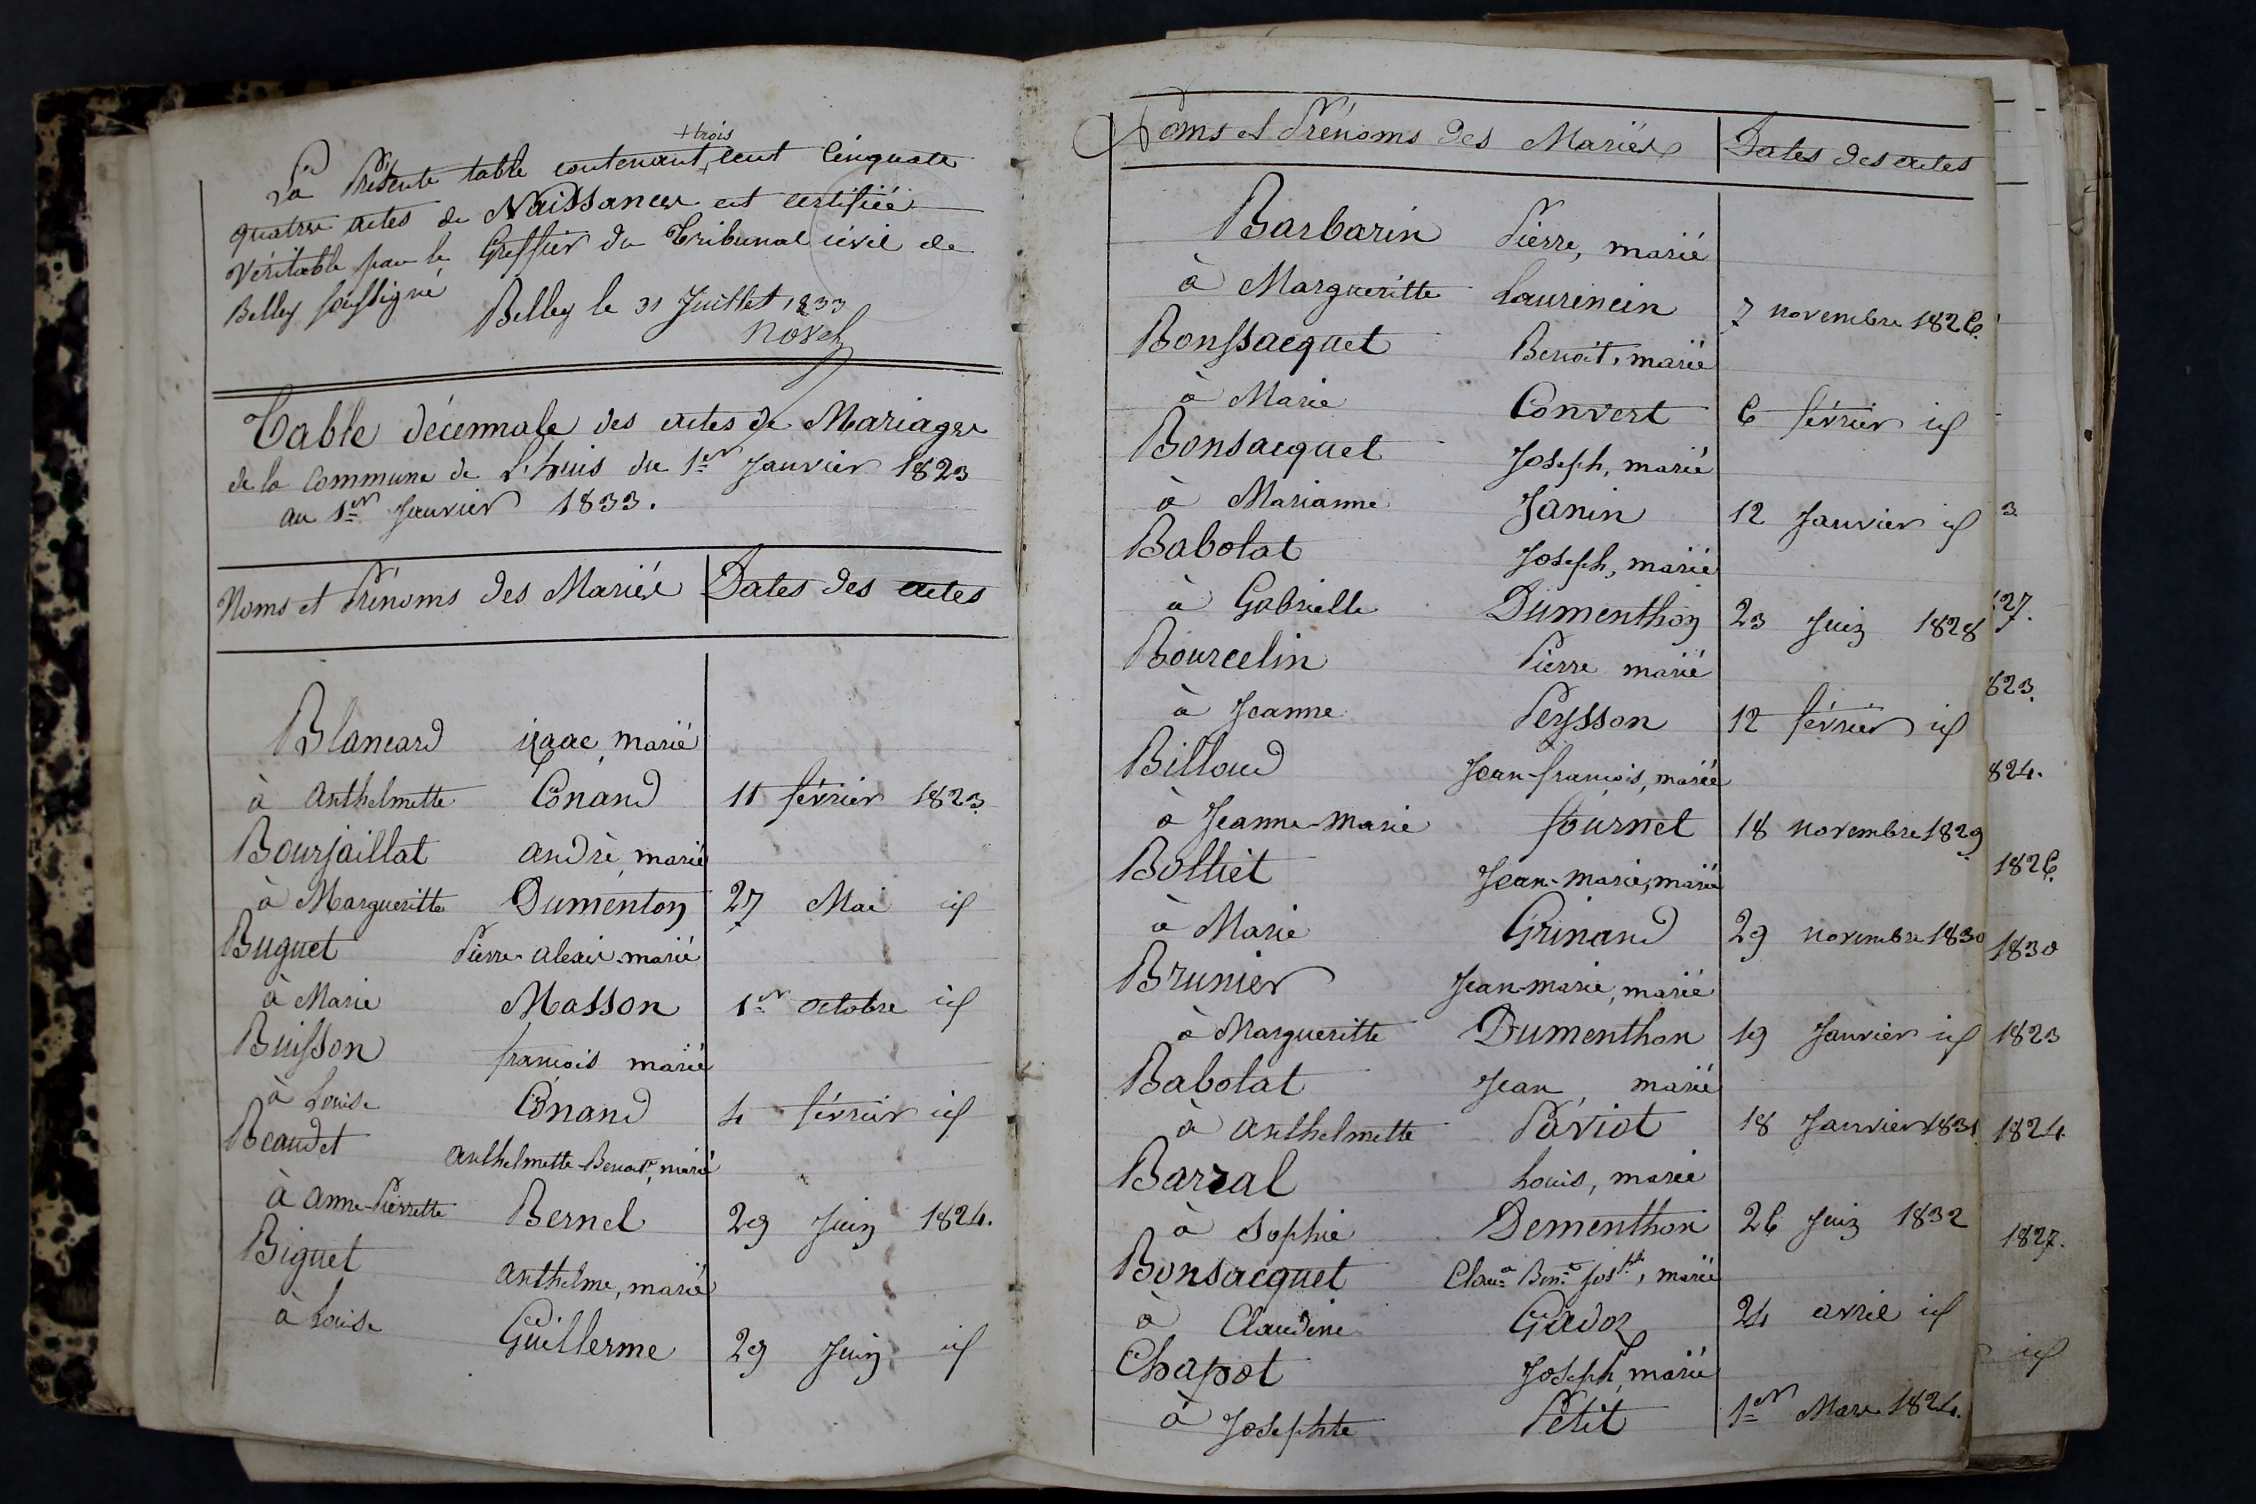 + trois
La Présente table contenant, cent Cinquate
quatre actes de Naissances est certifiée
Véritable par le Greffier du Tribunal civil de
Belley soussigné
Belley le 31 Juillet 1833
Table décennale des actes de Mariages
de la Commune de L'huis du 1er Janvier 1823
au 1er Janvier 1833.
Noms et Prénoms des Mariés Dates des actes
Blancard isaac, marié
à Anthelmette Conand 11 février 1823
Bourjaillat andrè, marié
à Margueritte Dumenton 27 Mai id
Buguet Pierre-alexis-marié
à Marie Masson 1er octobre id
Buisson françois marié
à Louise Conand 4 février id
Beaudet Anthelmette-Benoit, marié
à Anne-Pierrette Bernel 29 Juin 1824.
Biguet Anthelme, marié
à Louise Guillerme 29 Juin id
Noms et Prénoms des Mariés Dates des actes
Barbarin Pierre, marié
à Margueritte Laurencin 7 novembre 1826
Bonssacquet Benoit, marié
à Marie Convert 6 février id
Bonsacquet Joseph, marié
à Marianne Janin 12 Janvier id
Babolat Joseph, marié
à Gabrielle Dumenthon 23 Juin 1828
Bourcelin Pierre marié
à Jeanne Peysson 12 février id
Billoud Jean-françois, marié
à Jeanne-Marie fournet 18 novembre 1829
Bolliet Jean-Marie, marié
à Marie Grinand 29 novembre 1830
Brunier Jean-Marie, marié
à Margueritte Dumenthon 19 Janvier id
Babolat Jean, marié
à Anthelmette Pâviot 18 Janvier 1831
Barral Louis, marié
à Sophie Dementhon 26 Juin 1832
Bonsacquet Clau.e Ben.t Jos.ph, marié
à Claudine Gadoz 24 avril id
Chapot Joseph, marié
à Josephte Petit 1er Mars 1824.
3
27.
823.
824.
1826
1830
1823
1824
1827.
id